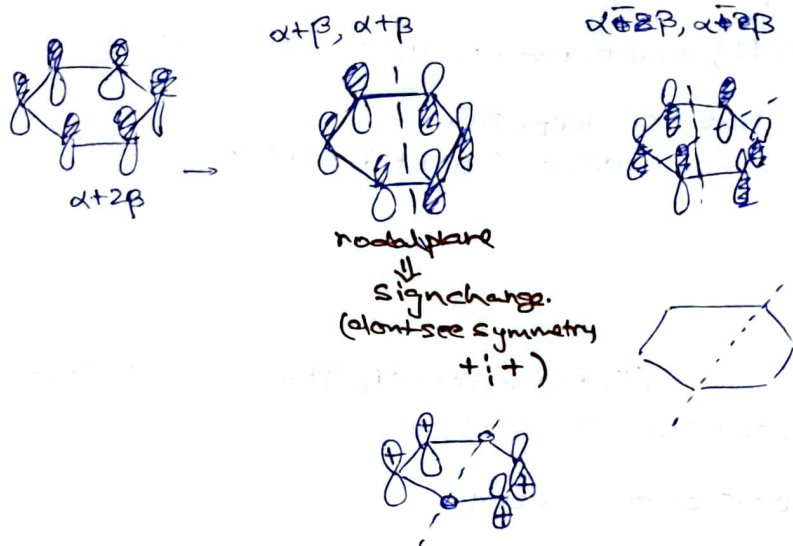 α+β, α+β
α+2β
nodal plane
⇓
sign change.
(don't see symmetry
+¦+)
+
+
+
+